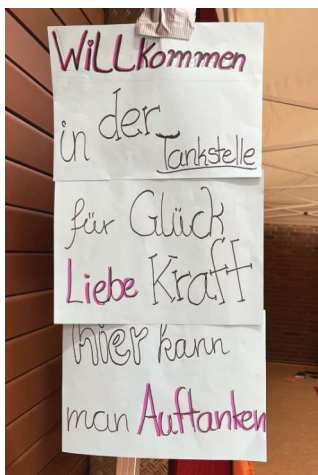 Willkommen
in der
Tankstelle
für Glück
Liebe Kraft
hier kann
man Auftanken